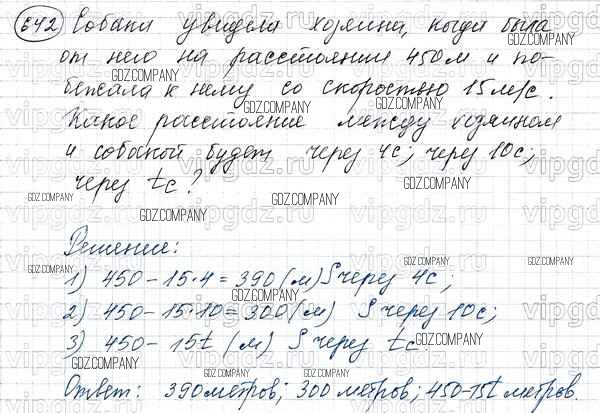 642 Собака увидела хозяина, когда была
от него на расстоянии 450 м и по-
бежала к нему со скоростью 15 м/с.
Какое расстояние между хозяином
и собакой будет через 4с; через 10с;
через tс?
Решение:
1) 450 - 15·4 = 390 (м) S через 4с;
2) 450 - 15·10 = 300 (м) S через 10с;
3) 450 - 15t (м) S через tс
Ответ: 390 метров; 300 метров; 450-15t метров.
GDZ.COMPANY
vipgdz.ru